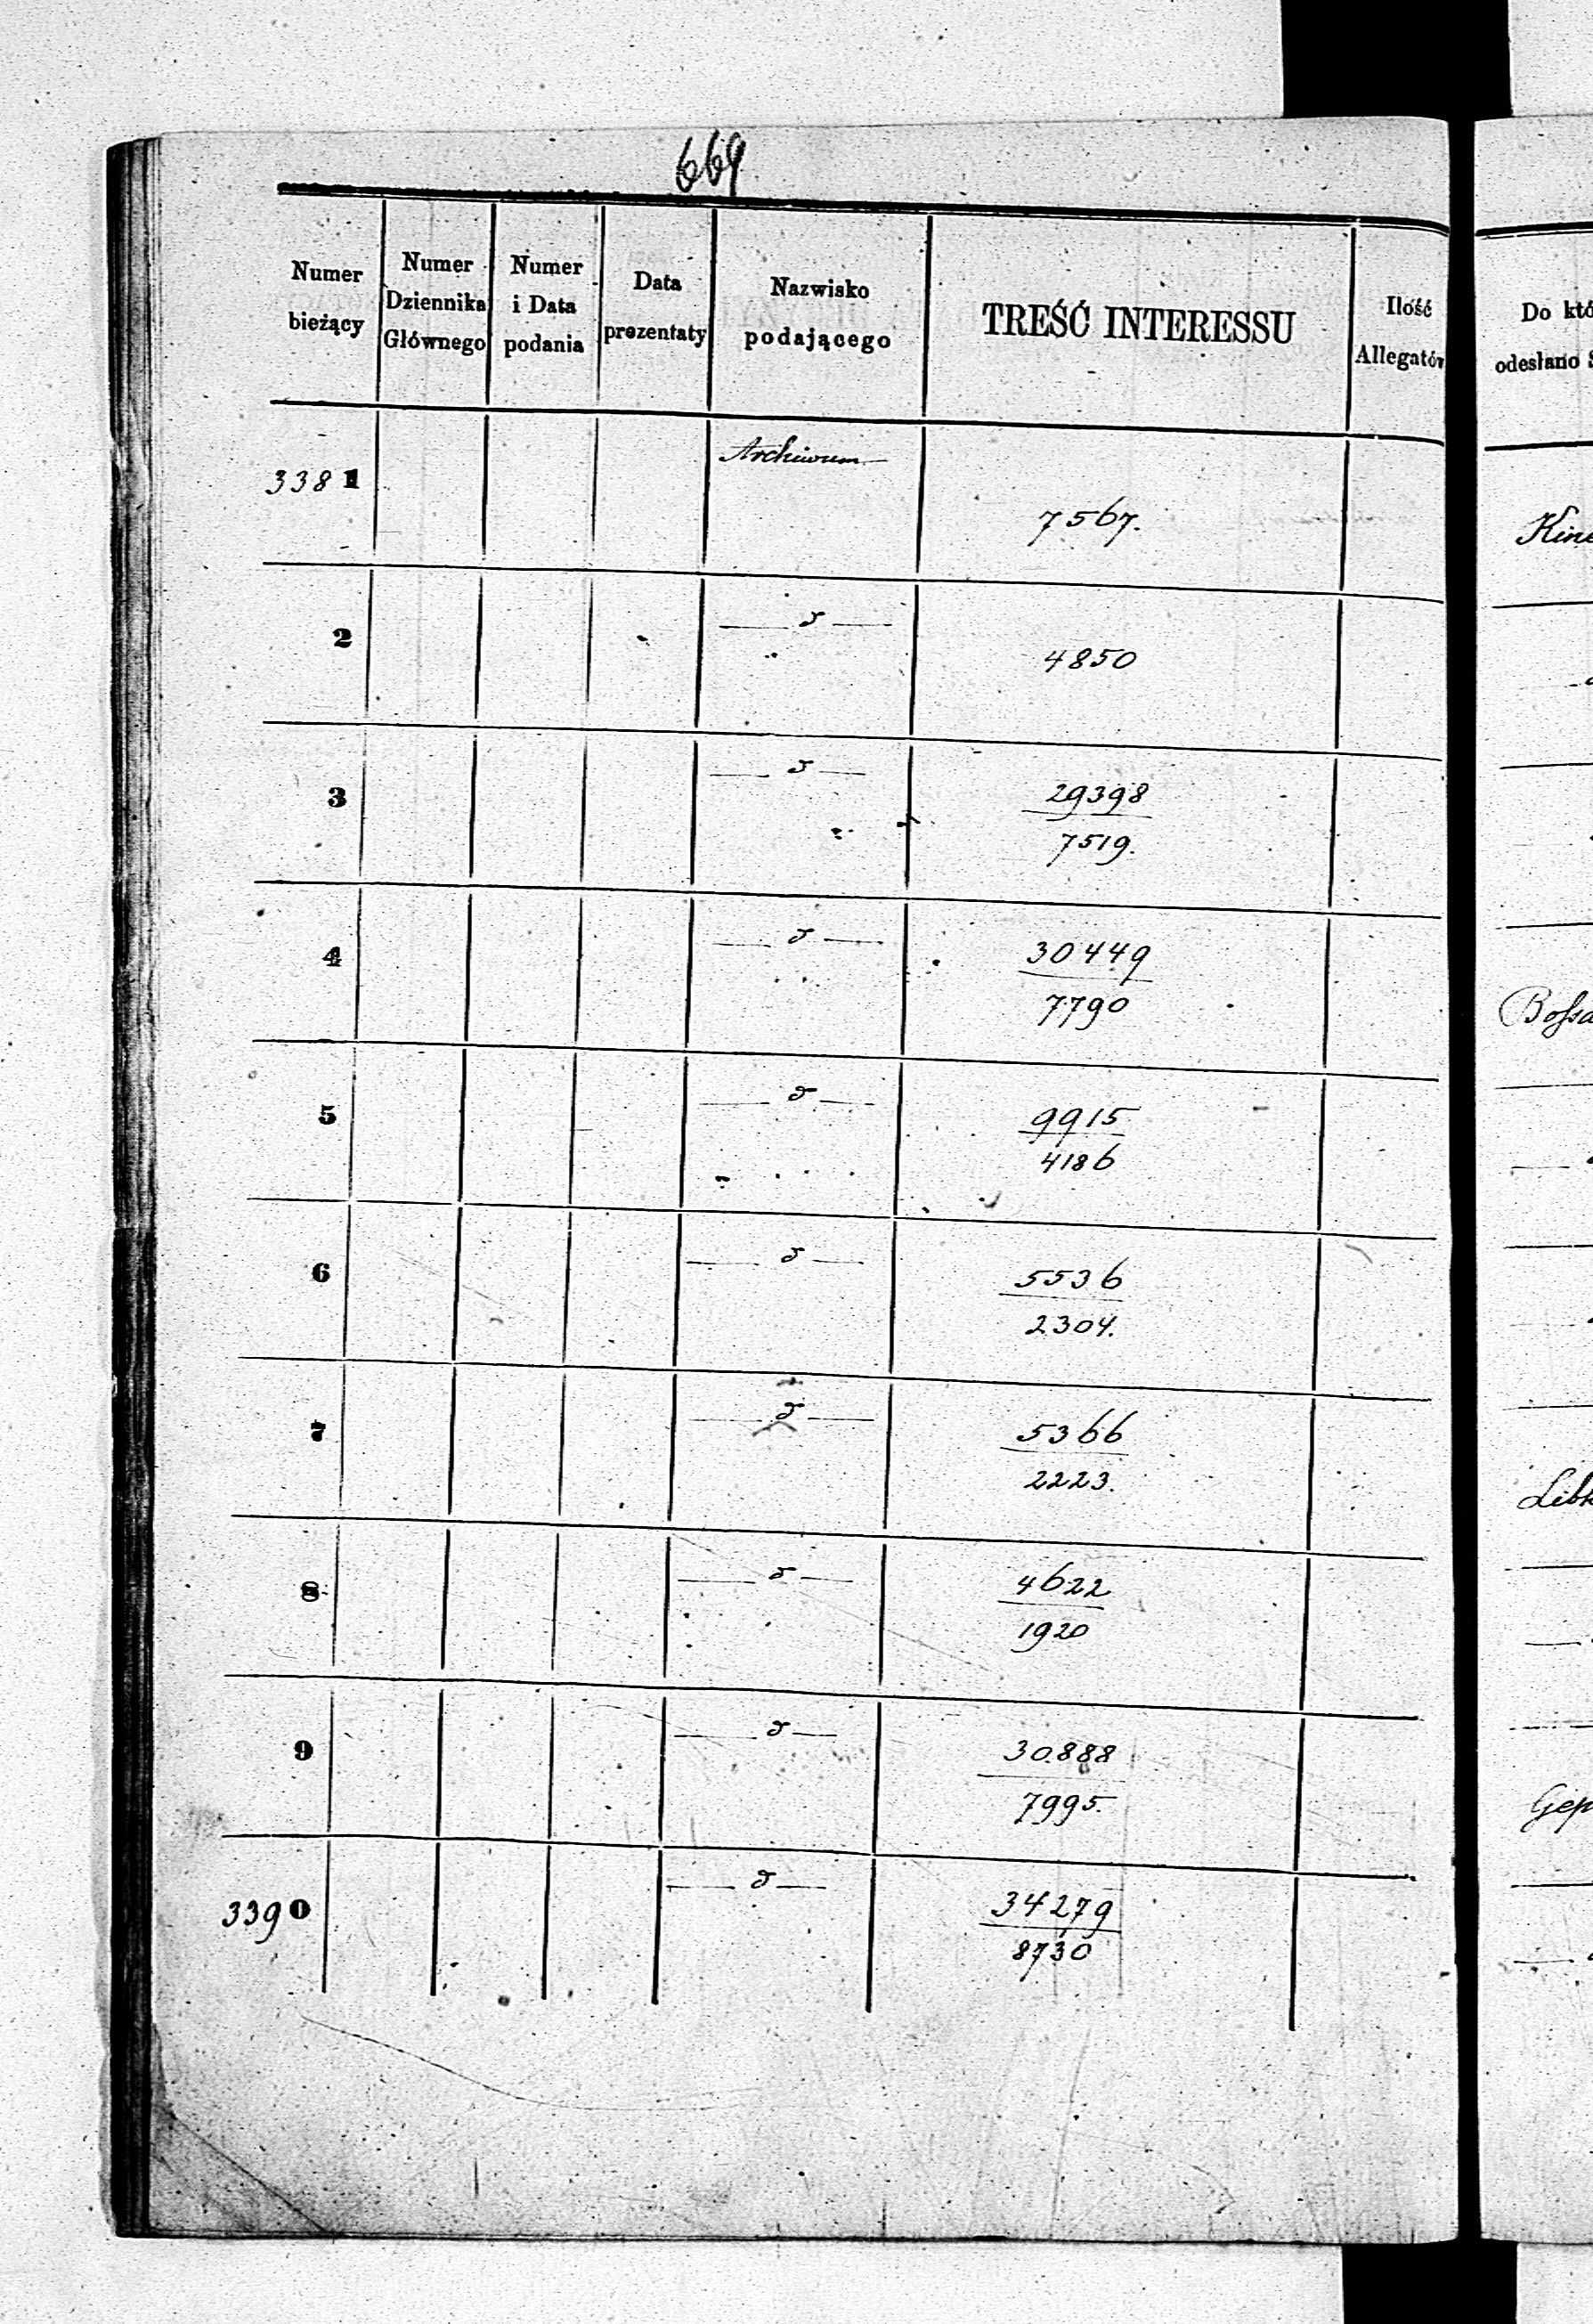 669
Numer bieżący
Numer Dziennika Głównego
Numer i Data podania
Data prezentaty
Nazwisko podającego
TREŚĆ INTERESSU
Ilość Allegatów
Do któ
odesłano S
3381 Archiwum 7567.
Kine
2 — d — 4850
3 — d — 29398
7519.
4 — d — 30449
7790
Bossa
5 — d — 9915
4186
6 — d — 5536
2304.
7 — d — 5366
2223.
Libk
8 — d — 4622
1920
9 — d — 30888
7995.
Gep
3390 — d — 34279
8730